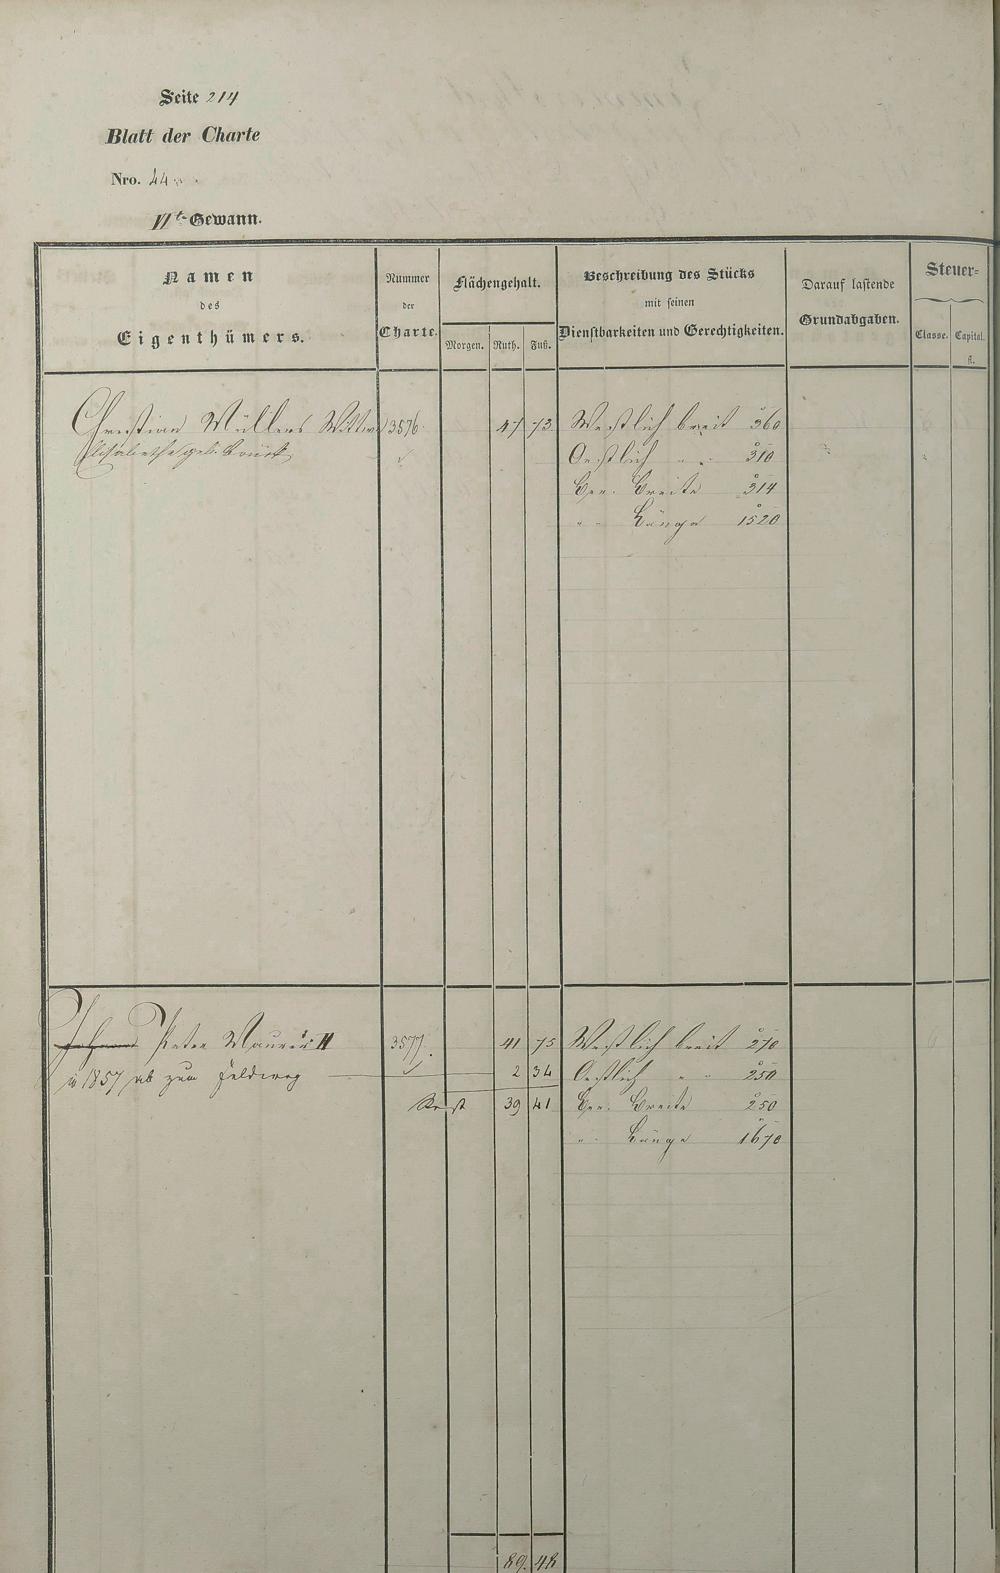 Seite 214
Blatt der Charte
Nro. 44
VIt Gewann.
Namen
des
Eigenthümers.
Nummer
der
Charte.
Flächengehalt.
Morgen. Ruth. Fuß.
Beschreibung des Stücks
mit seinen
Dienstbarkeiten und Gerechtigkeiten.
Darauf lastende
Grundabgaben.
Steuer=
Classe. Capital.
fl.
Christian Müllers Wittwe 3576. 47 73 Westlich breit 360
Elisabetha geb. Oestlich " " 310
Ger. Breite 314
" " Länge 1520
Johann Peter Maurer II 3577. 41 75 Westlich breit 270
in 1857 ab zum Feldweg 2 34 Oestlich " " 250
Rest 39 41 Ger. Breite 250
" " Länge 1670
89. 48